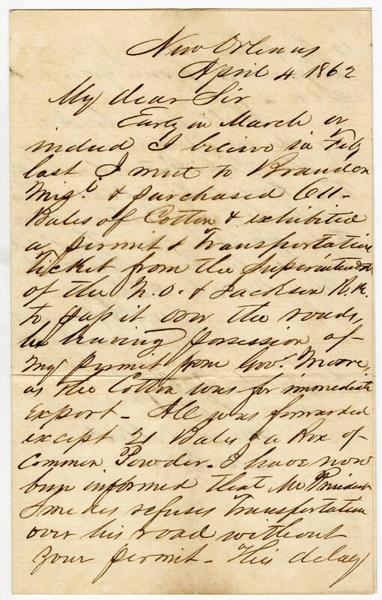 New Orleans
April 4. 1862
My dear Sir
Early in March or
indeed I believe in Feby
last I went to Brandon
Missi. & purchased 611
Bales of Cotton & exhibited
a permit & Transportation
Ticket from the Superintendent
of the N.O. & Jackson R.R.
to pass it over the roads,
he having possession of
my permit from Govr. Moore,
as the Cotton was for immediate
export - All was forwarded
except 21 Bales & a Box of
Common Powder. I have now
been informed that Mr President
Smedes refuses Transportation
over his road without
your permit - This delay